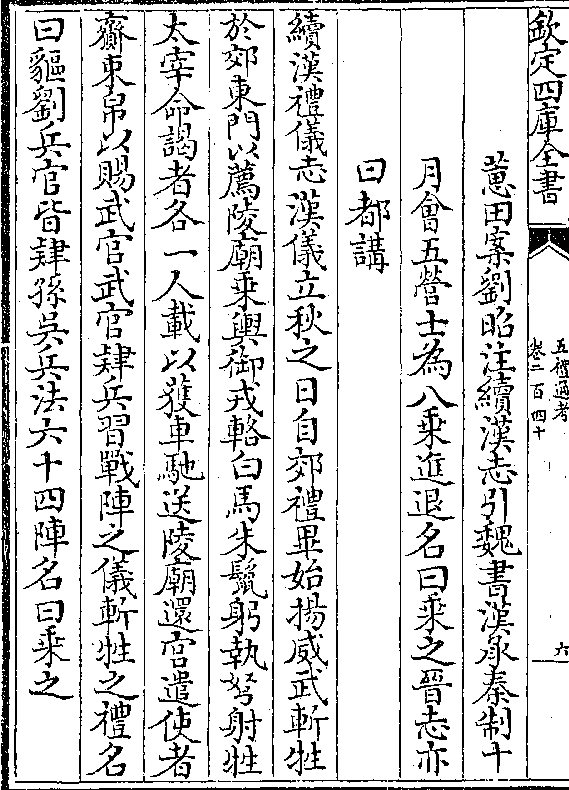 欽定四庫全書
五禮通考
卷二百四十
六
蕙田案劉昭注續漢志引魏書漢承秦制十
月會五營士為八乗進退名曰乗之晉志亦
曰都講
續漢禮儀志漢儀立秋之日自郊禮畢始揚威武斬牲
於郊東門以薦陵廟乗輿御戎輅白馬朱鬛躬執弩射牲
太宰命謁者各一人載以獲車馳送陵廟還宫遣使者
齎束帛以賜武官武官肄兵習戰陣之儀斬牲之禮名
曰貙劉兵官皆肄孫吳兵法六十四陣名曰乗之